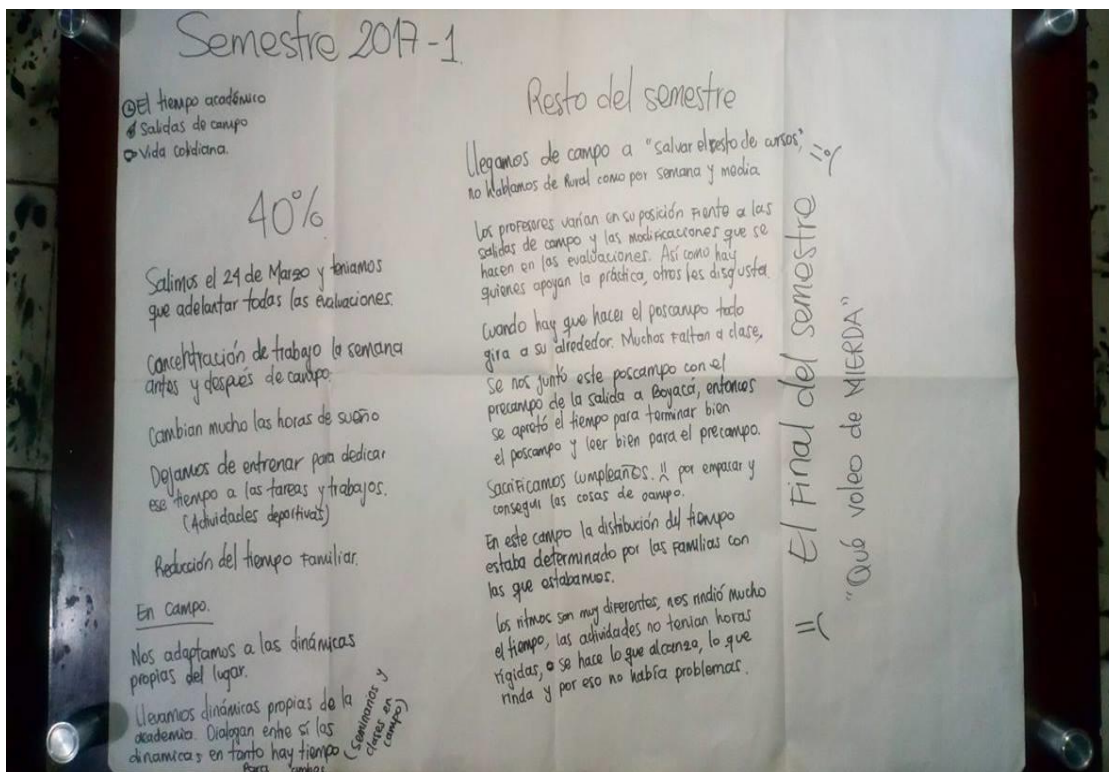 Semestre 2017-1
El tiempo académico
Salidas de campo
Vida cotidiana.
40%
Salimos el 24 de Marzo y teniamos
que adelantar todas las evaluaciones.
Concentración de trabajo la semana
antes y después de campo.
Cambian mucho las horas de sueño
Dejamos de entrenar para dedicar
ese tiempo a las tareas y trabajos.
(Actividades deportivas)
Reducción del tiempo Familiar.
En Campo.
Nos adaptamos a las dinámicas
propias del lugar.
Llevamos dinámicas propias de la
academia. Dialogan entre sí las
dinamicas en tanto hay tiempo
Para ambas
(Seminarios y
clases en
campo)
Resto del semestre
Llegamos de campo a "salvar el resto de cursos",
no hablamos de Rural como por semana y media
Los profesores varían en su posición Frente a las
salidas de campo y las modificaciones que se
hacen en las evaluaciones. Así como hay
quienes apoyan la práctica, otros les disgusta.
Cuando hay que hacer el poscampo todo
gira a su alrededor. Muchos Faltan a clase,
se nos juntó este poscampo con el
precampo de la salida a Boyacá, entonces
se apretó el tiempo para terminar bien
el poscampo y leer bien para el precampo.
Sacrificamos cumpleaños. :( por empacar y
conseguir las cosas de campo.
En este campo la distibución del tiempo
estaba determinado por las Familias con
las que estabamos.
los ritmos son muy diferentes, nos rindió mucho
el tiempo, las actividades no tenian horas
rígidas, o se hace lo que alcanza, lo que
rinda y por eso no había problemas.
=( El Final del semestre =(
"Qué voleo de MIERDA"